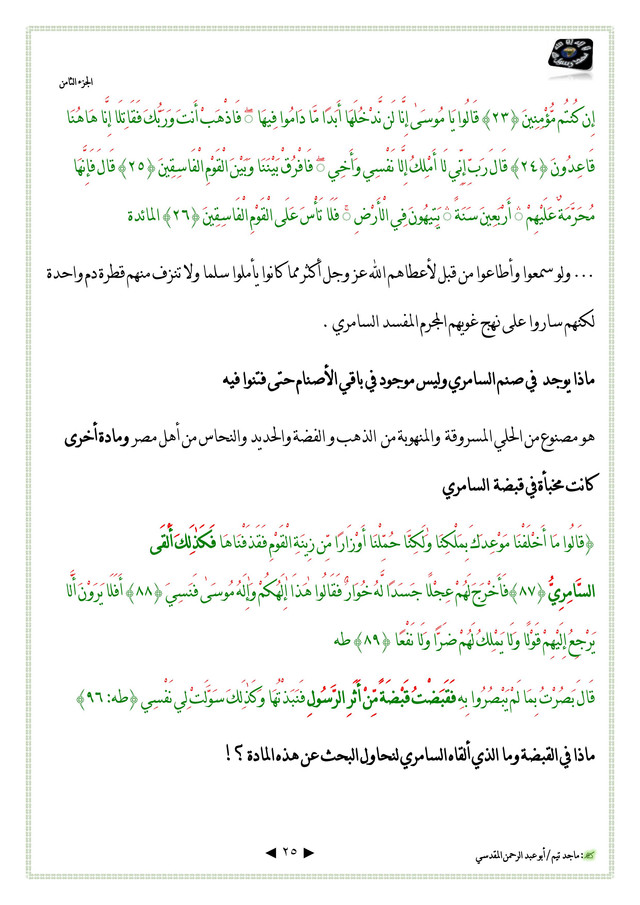 الجزء الثامن
إِن كُنتُم مُّؤْمِنِينَ ﴿٢٣﴾ قَالُوا يَا مُوسَىٰ إِنَّا لَن نَّدْخُلَهَا أَبَدًا مَّا دَامُوا فِيهَا ۖ فَاذْهَبْ أَنتَ وَرَبُّكَ فَقَاتِلَا إِنَّا هَاهُنَا
قَاعِدُونَ ﴿٢٤﴾ قَالَ رَبِّ إِنِّي لَا أَمْلِكُ إِلَّا نَفْسِي وَأَخِي ۖ فَافْرُقْ بَيْنَنَا وَبَيْنَ الْقَوْمِ الْفَاسِقِينَ ﴿٢٥﴾ قَالَ فَإِنَّهَا
مُحَرَّمَةٌ عَلَيْهِمْ ۛ أَرْبَعِينَ سَنَةً ۛ يَتِيهُونَ فِي الْأَرْضِ ۚ فَلَا تَأْسَ عَلَى الْقَوْمِ الْفَاسِقِينَ ﴿٢٦﴾ المائدة
... ولو سمعوا وأطاعوا من قبل لأعطاهم الله عز وجل أكثر مما كانوا يأملوا سلما ولا تنزف منهم قطرة دم واحدة
لكنهم ساروا على نهج غويهم المجرم المفسد السامري .
ماذا يوجد في صنم السامري وليس موجود في باقي الأصنام حتى فتنوا فيه
هو مصنوع من الحلي المسروقة والمنهوبة من الذهب و الفضة والحديد والنحاس من أهل مصر ومادة أخرى
كانت مخبأة في قبضة السامري
﴿قَالُوا مَا أَخْلَفْنَا مَوْعِدَكَ بِمَلْكِنَا وَلَٰكِنَّا حُمِّلْنَا أَوْزَارًا مِّن زِينَةِ الْقَوْمِ فَقَذَفْنَاهَا فَكَذَٰلِكَ أَلْقَى
السَّامِرِيُّ ﴿٨٧﴾ فَأَخْرَجَ لَهُمْ عِجْلًا جَسَدًا لَّهُ خُوَارٌ فَقَالُوا هَٰذَا إِلَٰهُكُمْ وَإِلَٰهُ مُوسَىٰ فَنَسِيَ ﴿٨٨﴾ أَفَلَا يَرَوْنَ أَلَّا
يَرْجِعُ إِلَيْهِمْ قَوْلًا وَلَا يَمْلِكُ لَهُمْ ضَرًّا وَلَا نَفْعًا ﴿٨٩﴾ طه
قَالَ بَصُرْتُ بِمَا لَمْ يَبْصُرُوا بِهِ فَقَبَضْتُ قَبْضَةً مِّنْ أَثَرِ الرَّسُولِ فَنَبَذْتُهَا وَكَذَٰلِكَ سَوَّلَتْ لِي نَفْسِي ﴿طه: ٩٦﴾
ماذا في القبضة وما الذي ألقاه السامري لنحاول البحث عن هذه المادة ؟ !
◄ ٢٥ ►
: ماجد تيم / أبو عبد الرحمن المقدسي